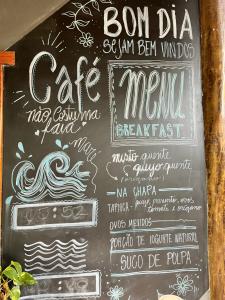 BOM DIA
SEJAM BEM VINDOS
Café
não costuma
faiá
MENU
BREAKFAST
misto quente
queijo quente
NA CHAPA
TAPIOCA - queijo, presunto, ovos,
tomate e orégano
OVOS MEXIDOS
PORÇÃO DE IOGURTE NATURAL
SUCO DE POLPA